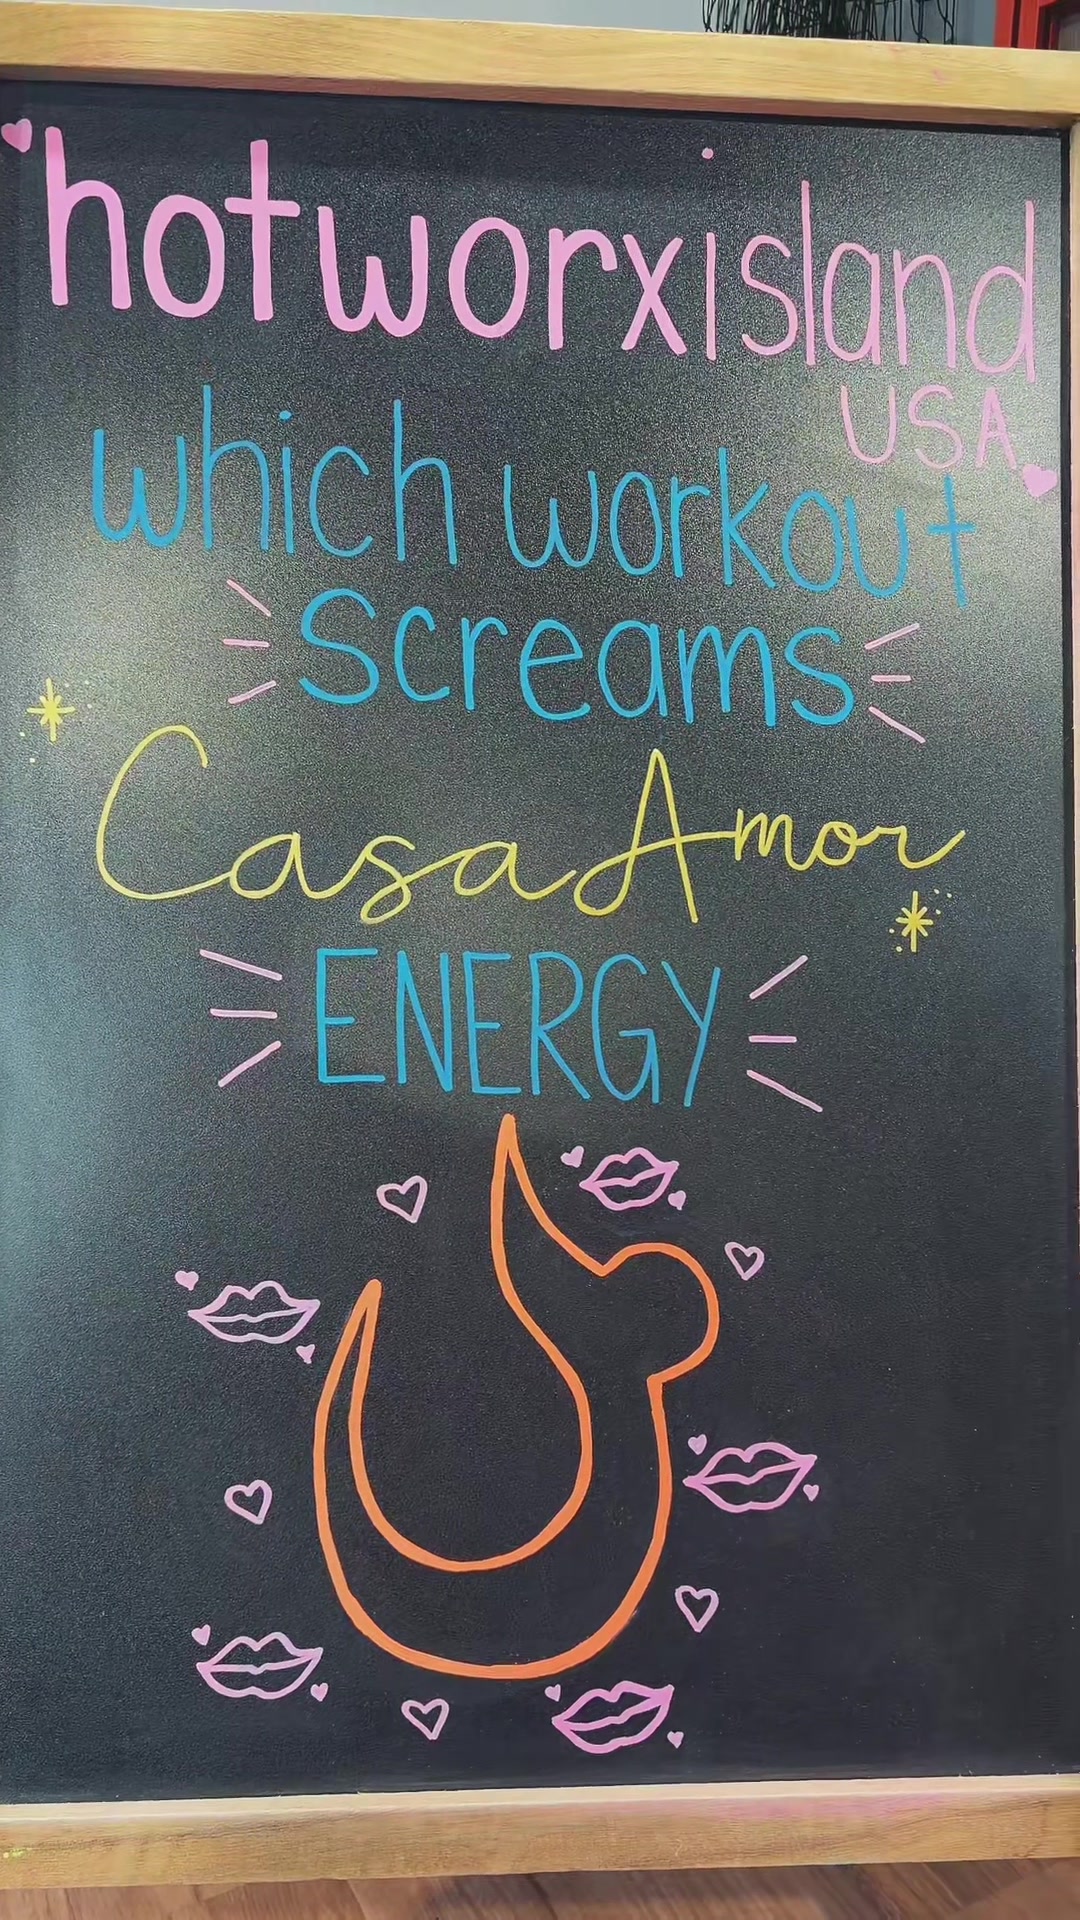 hotworxisland
USA
which workout
Screams
Casa Amor
ENERGY